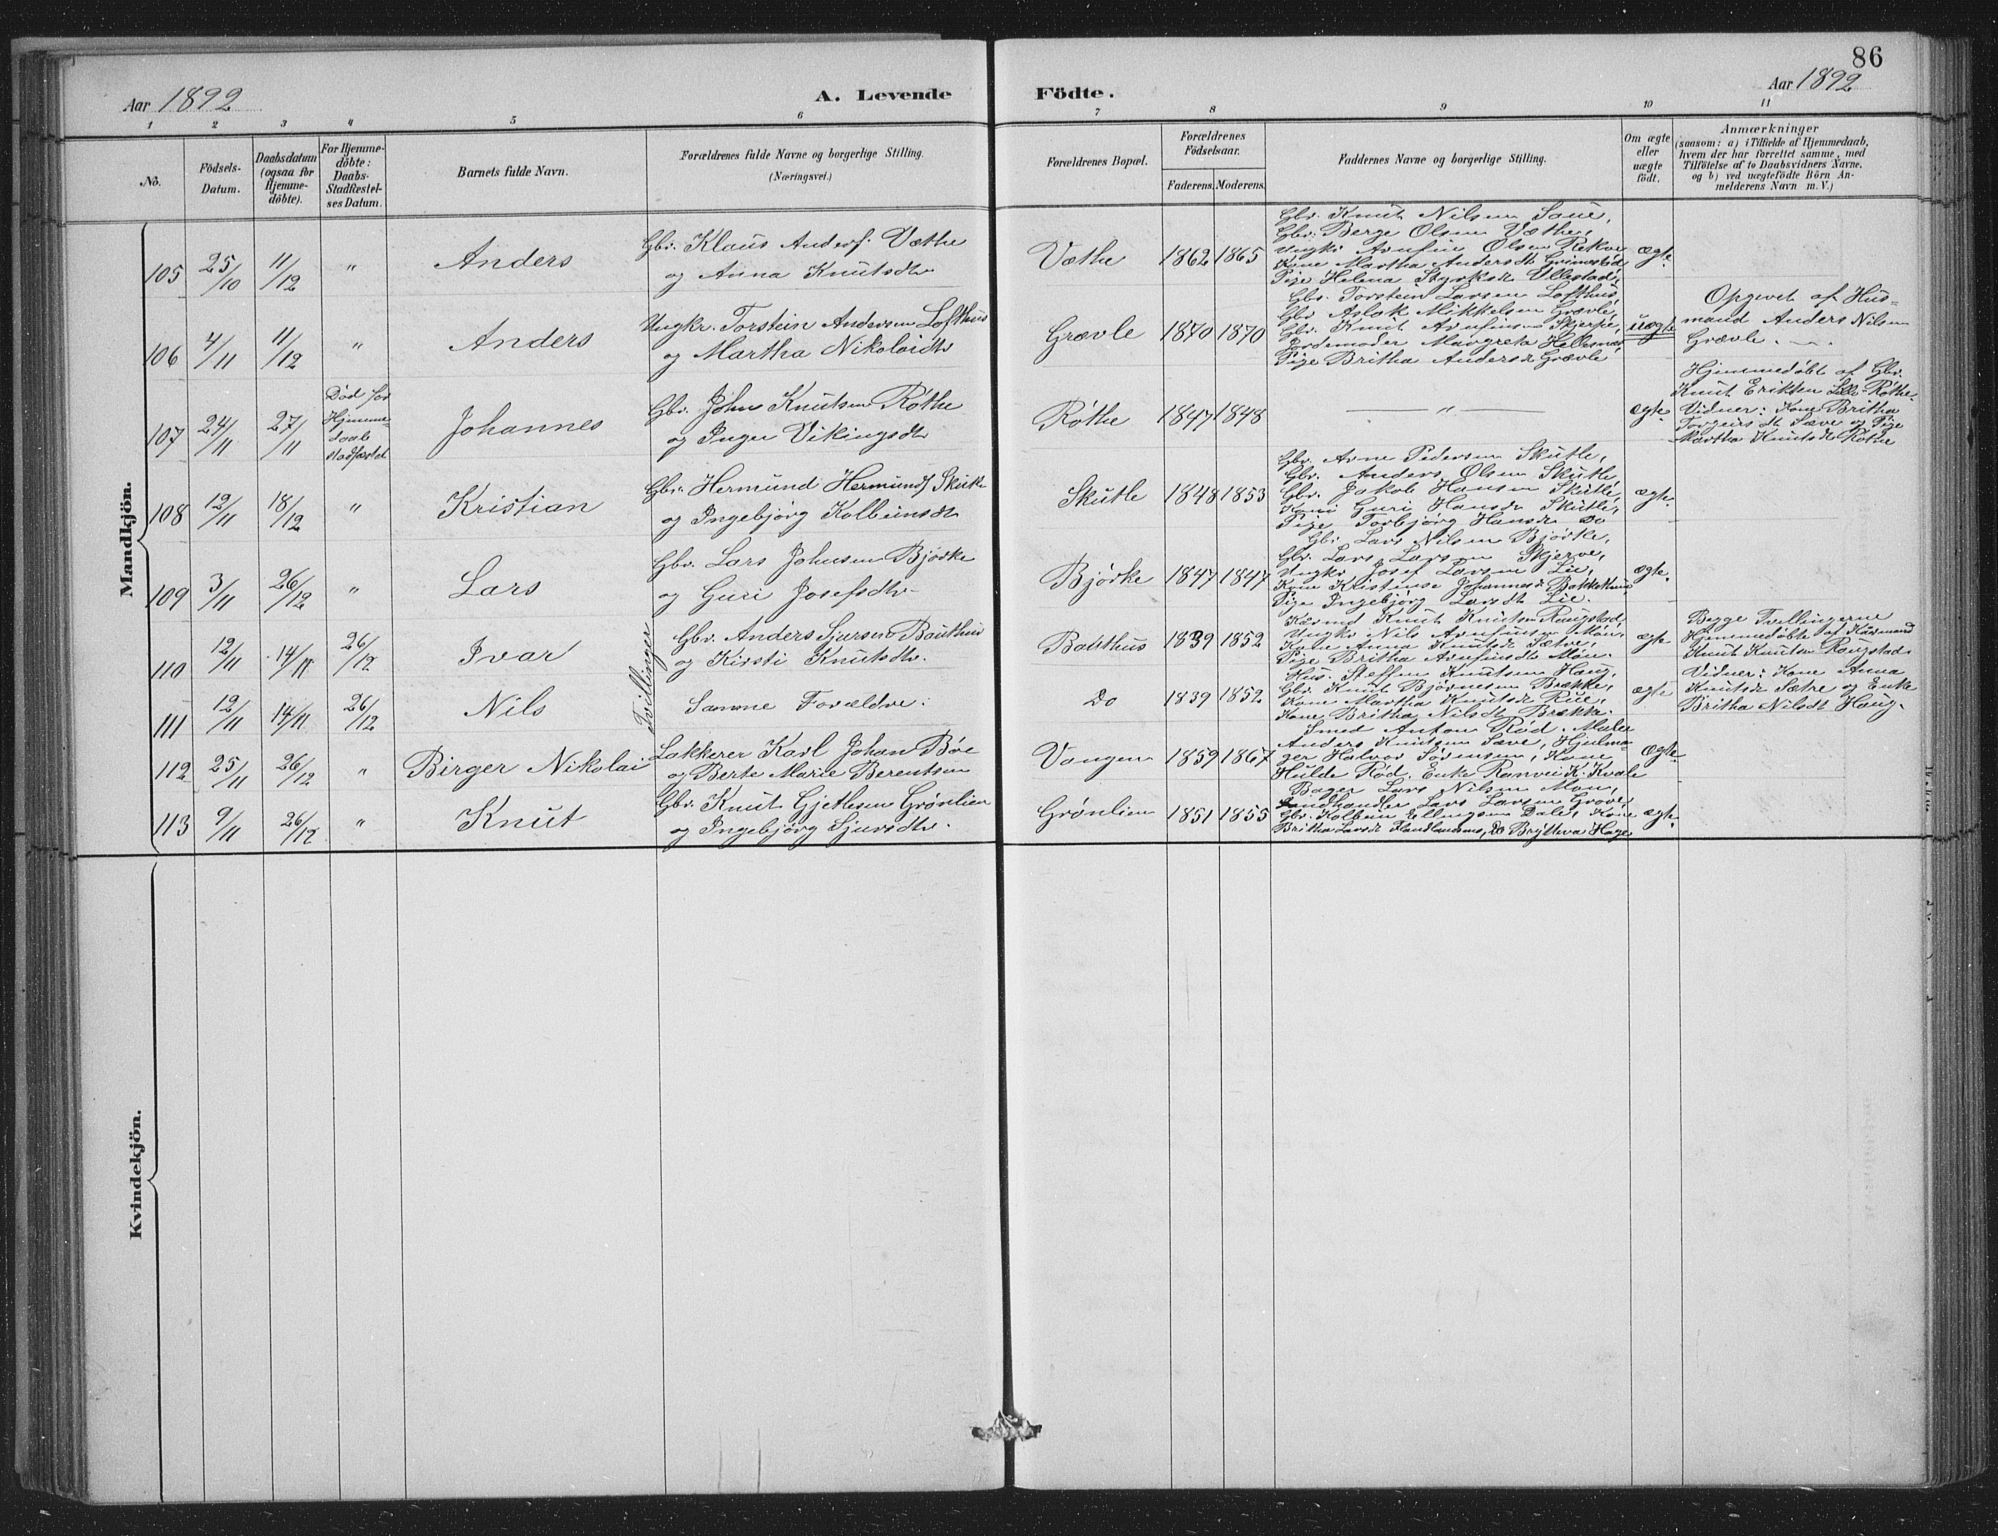 86
Aar 1892
A. Levende Födte.
Aar 1892
1 2 3 4 5 6 7 8 9 10 11
No.
Födsels-
Datum.
Daabsdatum
(ogsaa for
Hjemme-
döbte).
For Hjemme-
döbte:
Daabs-
Stadfæstel-
ses Datum.
Barnets fulde Navn.
Forældrenes fulde Navne og borgerlige Stilling.
(Næringsvei.)
Forældrenes Bopæl.
Forældrenes
Födselsaar.
Faderens. Moderens.
Faddernes Navne og borgerlige Stilling.
Om ægte
eller
uægte
födt.
Anmærkninger
(saasom: a) i Tilfælde af Hjemmedaab,
hvem der har forrettet samme, med
Tilföielse af to Daabsvidners Navne.
og b) ved uægtefödte Börn An-
melderens Navn m. V.)
Mandkjön.
105 25/10 11/12 " Anders
Gbr. Klaus Andersf. Væthe
og Anna Knutsdtr
Væthe 1862 1865
Gbr. Knut Nilsen Saue,
Gbr. Berge Olsen Væthe,
Ungkr Arnfin Olsen Rekve
Kone Martha Andersdt Grimestad
Pige Helena Styrksdt Ullestad
ægte
106 4/11 11/12 " Anders
Ungkr. Torstein Andersen Lofthus
og Martha Nikolaidtr
Grævle 1870 1870
Gbr. Torstein Larsen Lofthus,
Gbr Aslak Mikkelsen Grævle,
Gbr. Knut Arnfinsen Skjerpe,
Jordemoder Margreta Hellesnæs
Pige Britha Andersdt Grævle
uægte
Opgevet af Hus-
mand Anders Nilsen
Grævle.
107 24/11 27/11
Död før
Hjemme-
daab
stadfæstet
Johannes
Gbr. John Knutsen Røthe
og Inger Vikingsdtr
Røthe 1847 1848 — " — ægte
Hjemmedøbt af Gbr.
Knut Eriksen Lille-Røthe.
Vidner: Kone Britha
Torgeirsdt Sæve og Pige
Martha Knutsdt Røthe
108 12/11 18/12 " Kristian
Gbr. Hermund Hermunds Skutle
og Ingebjørg Kolbeinsdtr
Skutle 1848 1853
Gbr. Arne Pedersen Skutle,
Gbr. Anders Olsen Skutle,
Gbr. Jakob Hansen Skutle,
Kone Guri Hansdt Skutle,
Pige Torbjørg Hansdt Do
ægte
109 3/11 26/12 " Lars
Gbr. Lars Johnsen Bjørke
og Guri Josefsdtr
Bjørke 1847 1847
Gbr. Lars Nilsen Bjørke,
Gbr. Lars Larsen Skjerve,
Ungkr. Josef Larsen Lie,
Kone Kristense Johannesdt Bakkethun
Pige Ingebjørg Larsdt Lie.
ægte
Tvillinger
110 12/11 14/11 26/12 Ivar
Gbr. Anders Sjursen Bauthus
og Kirsti Knutsdtr.
Bauthus 1839 1852
Kårmd Knut Knutsen Rangstad,
Ungkr Nils Arnfinsen Møn,
Kone Anna Knutsdt Sætre,
Pige Britha Arnfinsdt Møn.
ægte
Begge Tvillingerne
Hjemmedøbte af Kårmand
Knut Knutsen Rangstad.
Vidner: Kone Anna
Knutsdt Sætre og Enke
Britha Nilsdt Haug.
111 12/11 14/11 26/12 Nils
Samme Forældre.
Do 1839 1852
Hus. Steffen Knutsen Haug,
Gbr. Knut Bjørnesen Brække,
Kone Martha Knutsdt Rue,
Kone Britha Nilsdt Brække.
ægte
112 25/11 26/12 " Birger Nikolai
Lakkerer Karl Johan Böe
og Berte Marie Berentsen
Vangen 1859 1867
Smed Anton Rød. Maler
Anders Knutsen Sæve, Hjulma-
ger Halvor Sørensen, Kone
Hulde Rød. Enke Ranvei K. Kvale
Ægte
113 9/11 26/12 " Knut
Gbr. Knut Gjetlesen Grønlien
og Ingebjørg Sjursdtr.
Grønlien 1851 1855
Bager Lars Nilsen Møn,
Landhandler Lars Larsen Grove,
Gbr. Kolbein Ellingsen Dale, Kone
Britha Larsdt Flandhammer, Do Brytteva Hage
ægte
Kvindekjön.